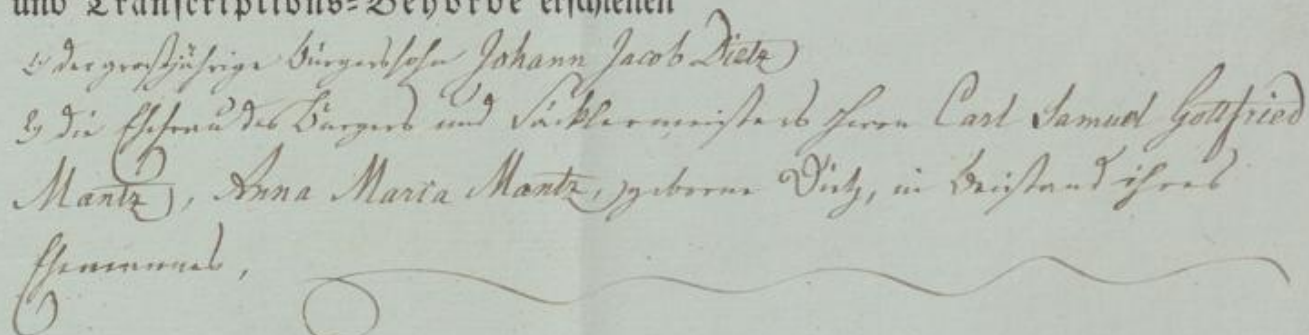 und Transcriptions-Behörde erschienen
1) der großjährige Bürgerssohn Johann Jacob Dietz
2) die Ehefrau des Bürgers und Säcklermeisters Herrn Carl Samuel Gottfried
Mantz, Anna Maria Mantz, geborne Dietz, in Beistand ihres
Ehemannes,